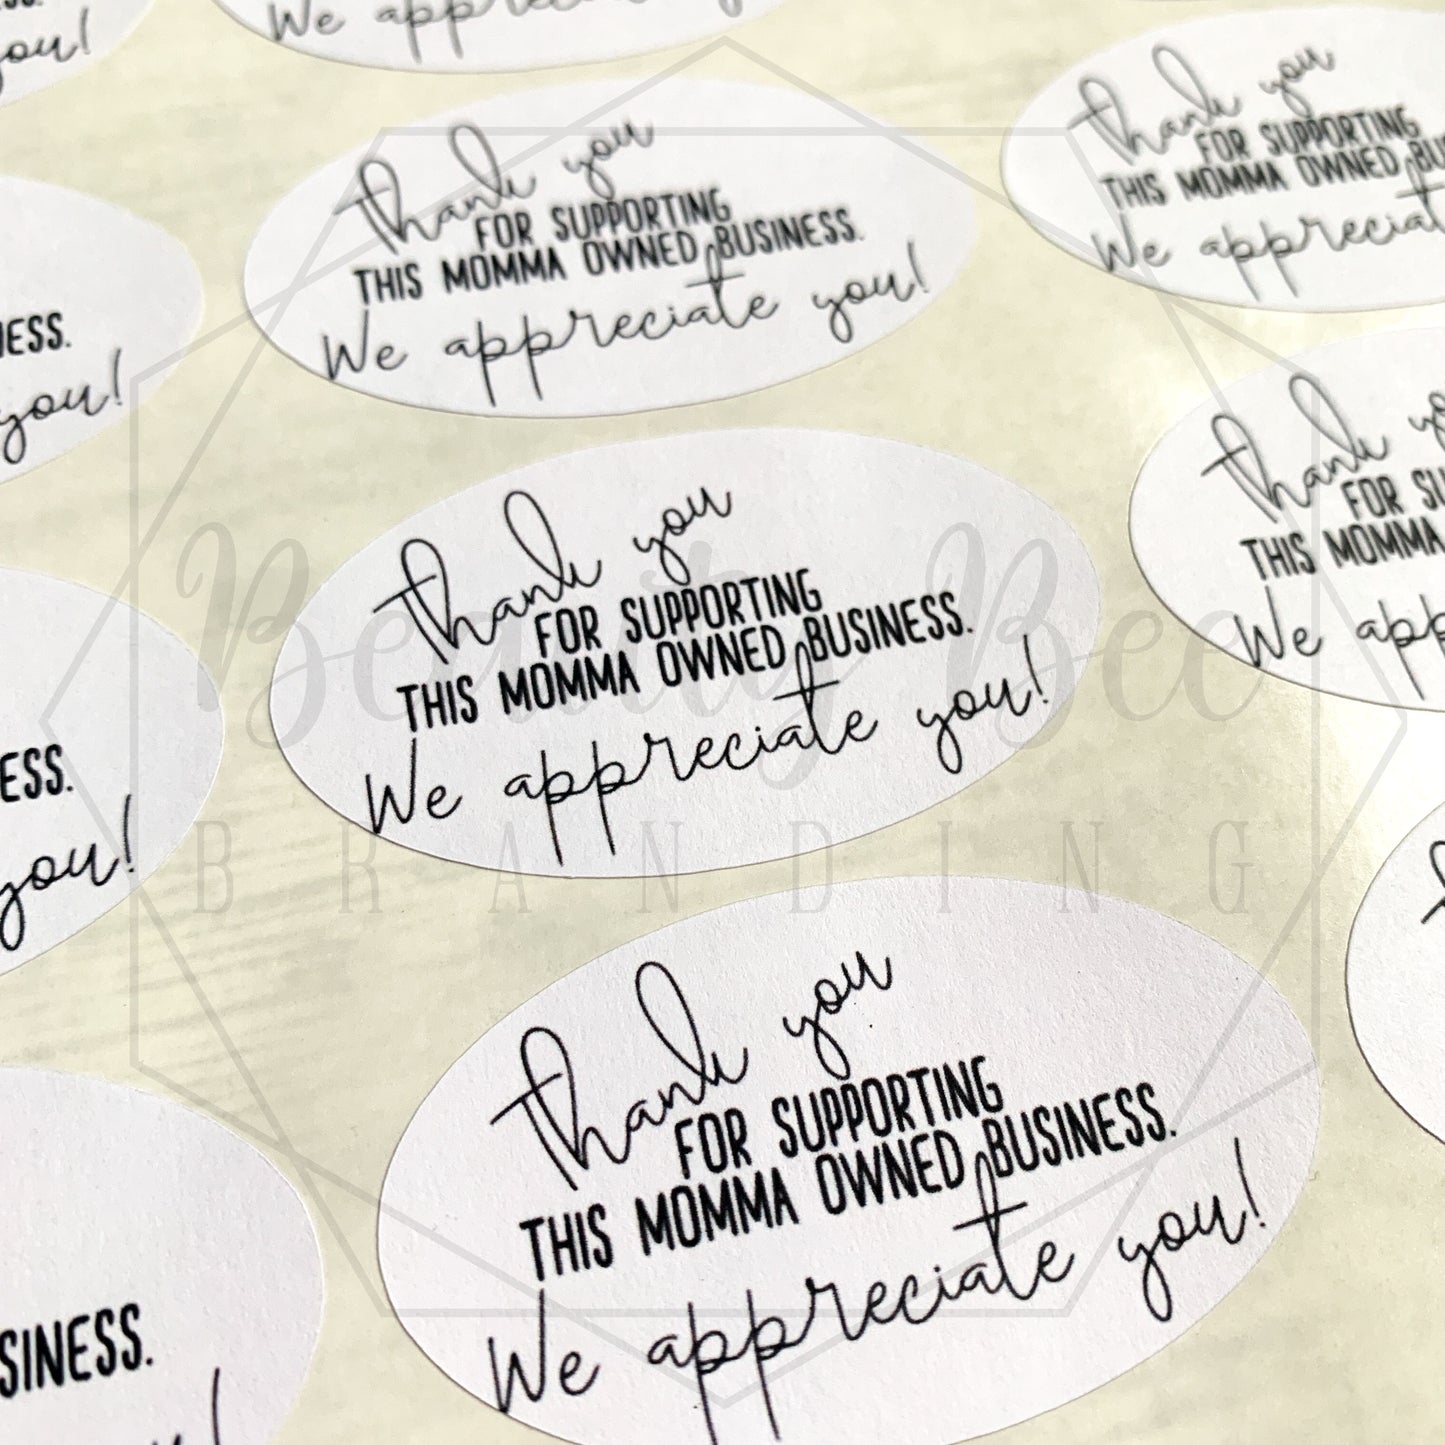 you!
We appreciate you!
Thank you
FOR SUPPORTING
THIS MOMMA OWNED BUSINESS.
We appreciate you!
Thank you
FOR SUPPORTING
THIS MOMMA OWNED
We
NESS.
you!
Thank you
FOR SUPPORTING
THIS MOMMA OWNED BUSINESS.
We appreciate you!
Thank
FOR
THIS MOMMA
We
ESS.
you!
Thank you
FOR SUPPORTING
THIS MOMMA OWNED BUSINESS.
We appreciate you!
SINESS.
Beauty Bee
BRANDING